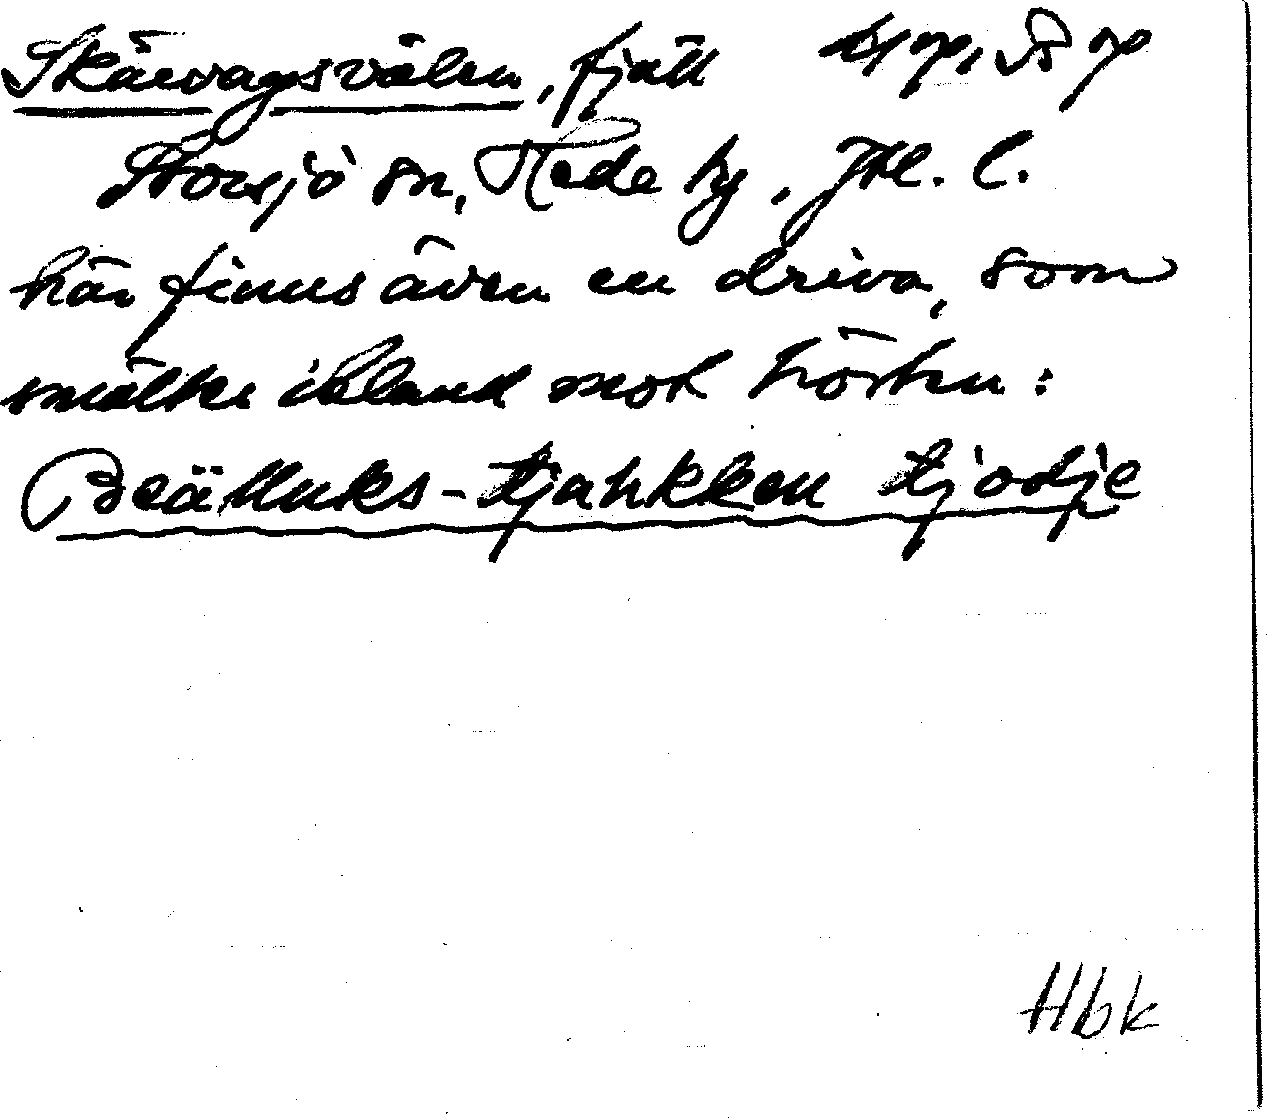 Skärvagsvålen, fjäll
Storsjö sn, Hede tg, Jtl. l.
här finnes även en driva, som
smälter ibland mot hösten:
Beälluks-tjahkken tjodje
Hbk